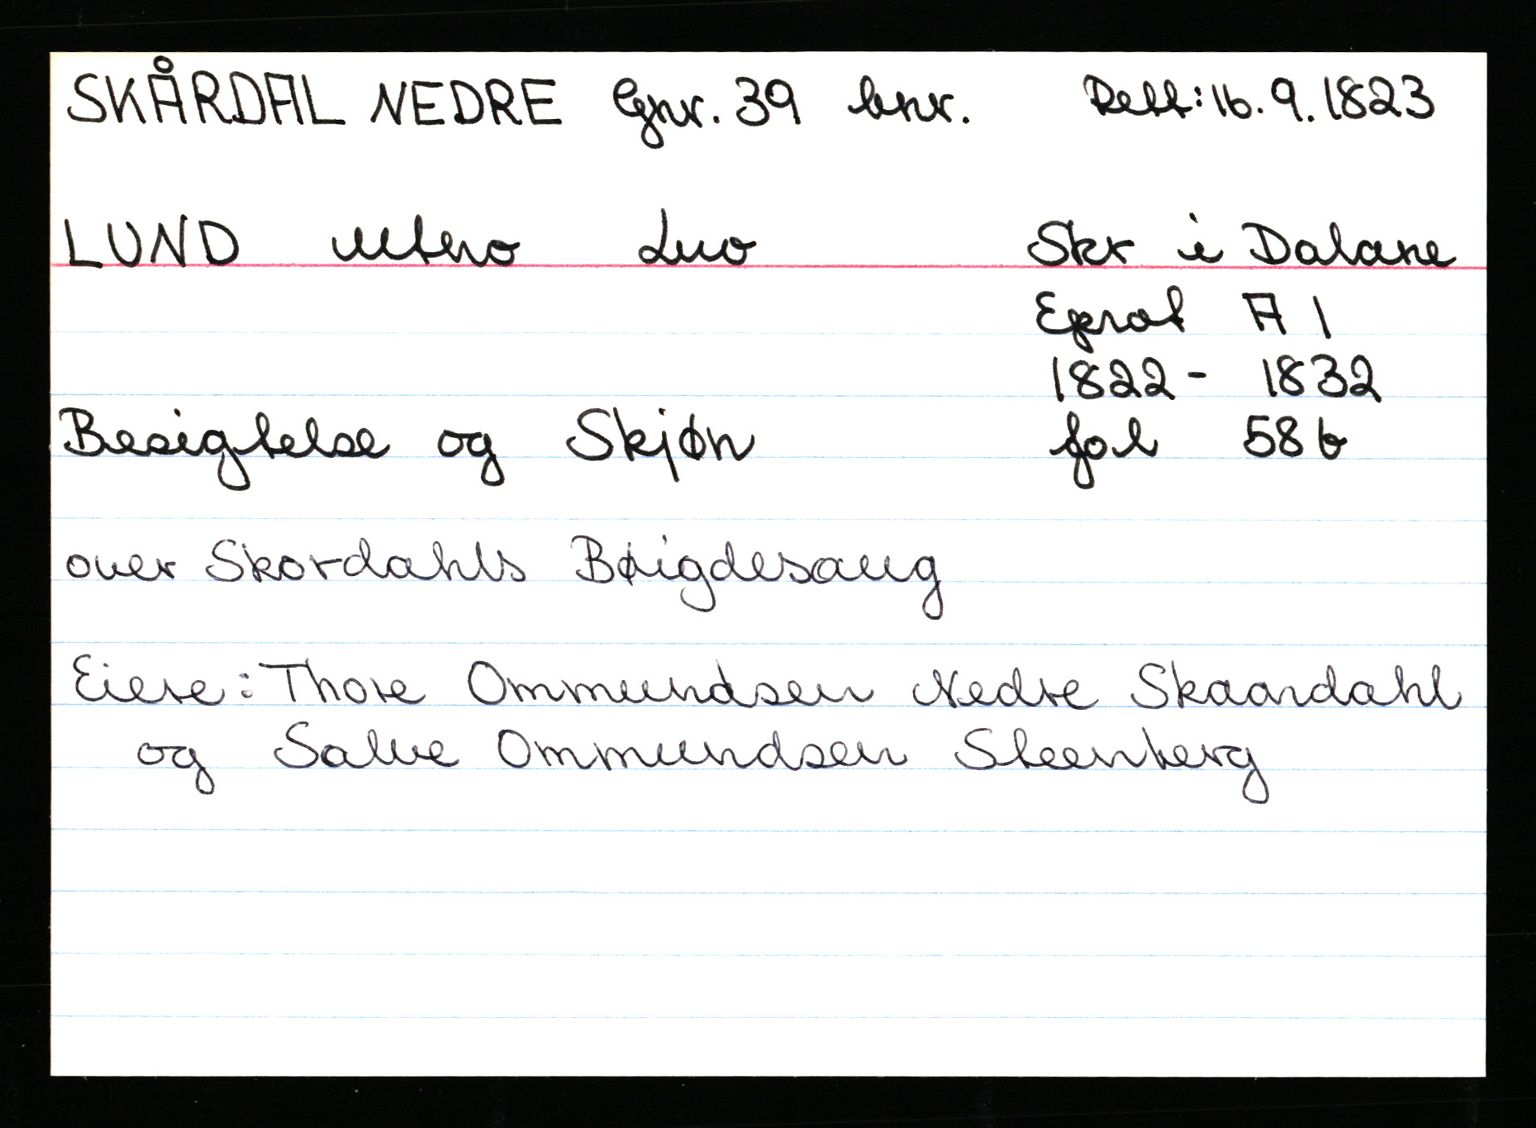 SKÅRDAL NEDRE Gnr. 39 bnr. Dett: 16.9.1823
LUND utno Lno Skr i Dalane
Eprot A 1
1822 - 1832
Besigtelse og Skjøn fol 58b
over Skordahls Bøigdesaug
Eiere: Thore Ommundsen Nedre Skaardahl
og Salve Ommundsen Steenberg